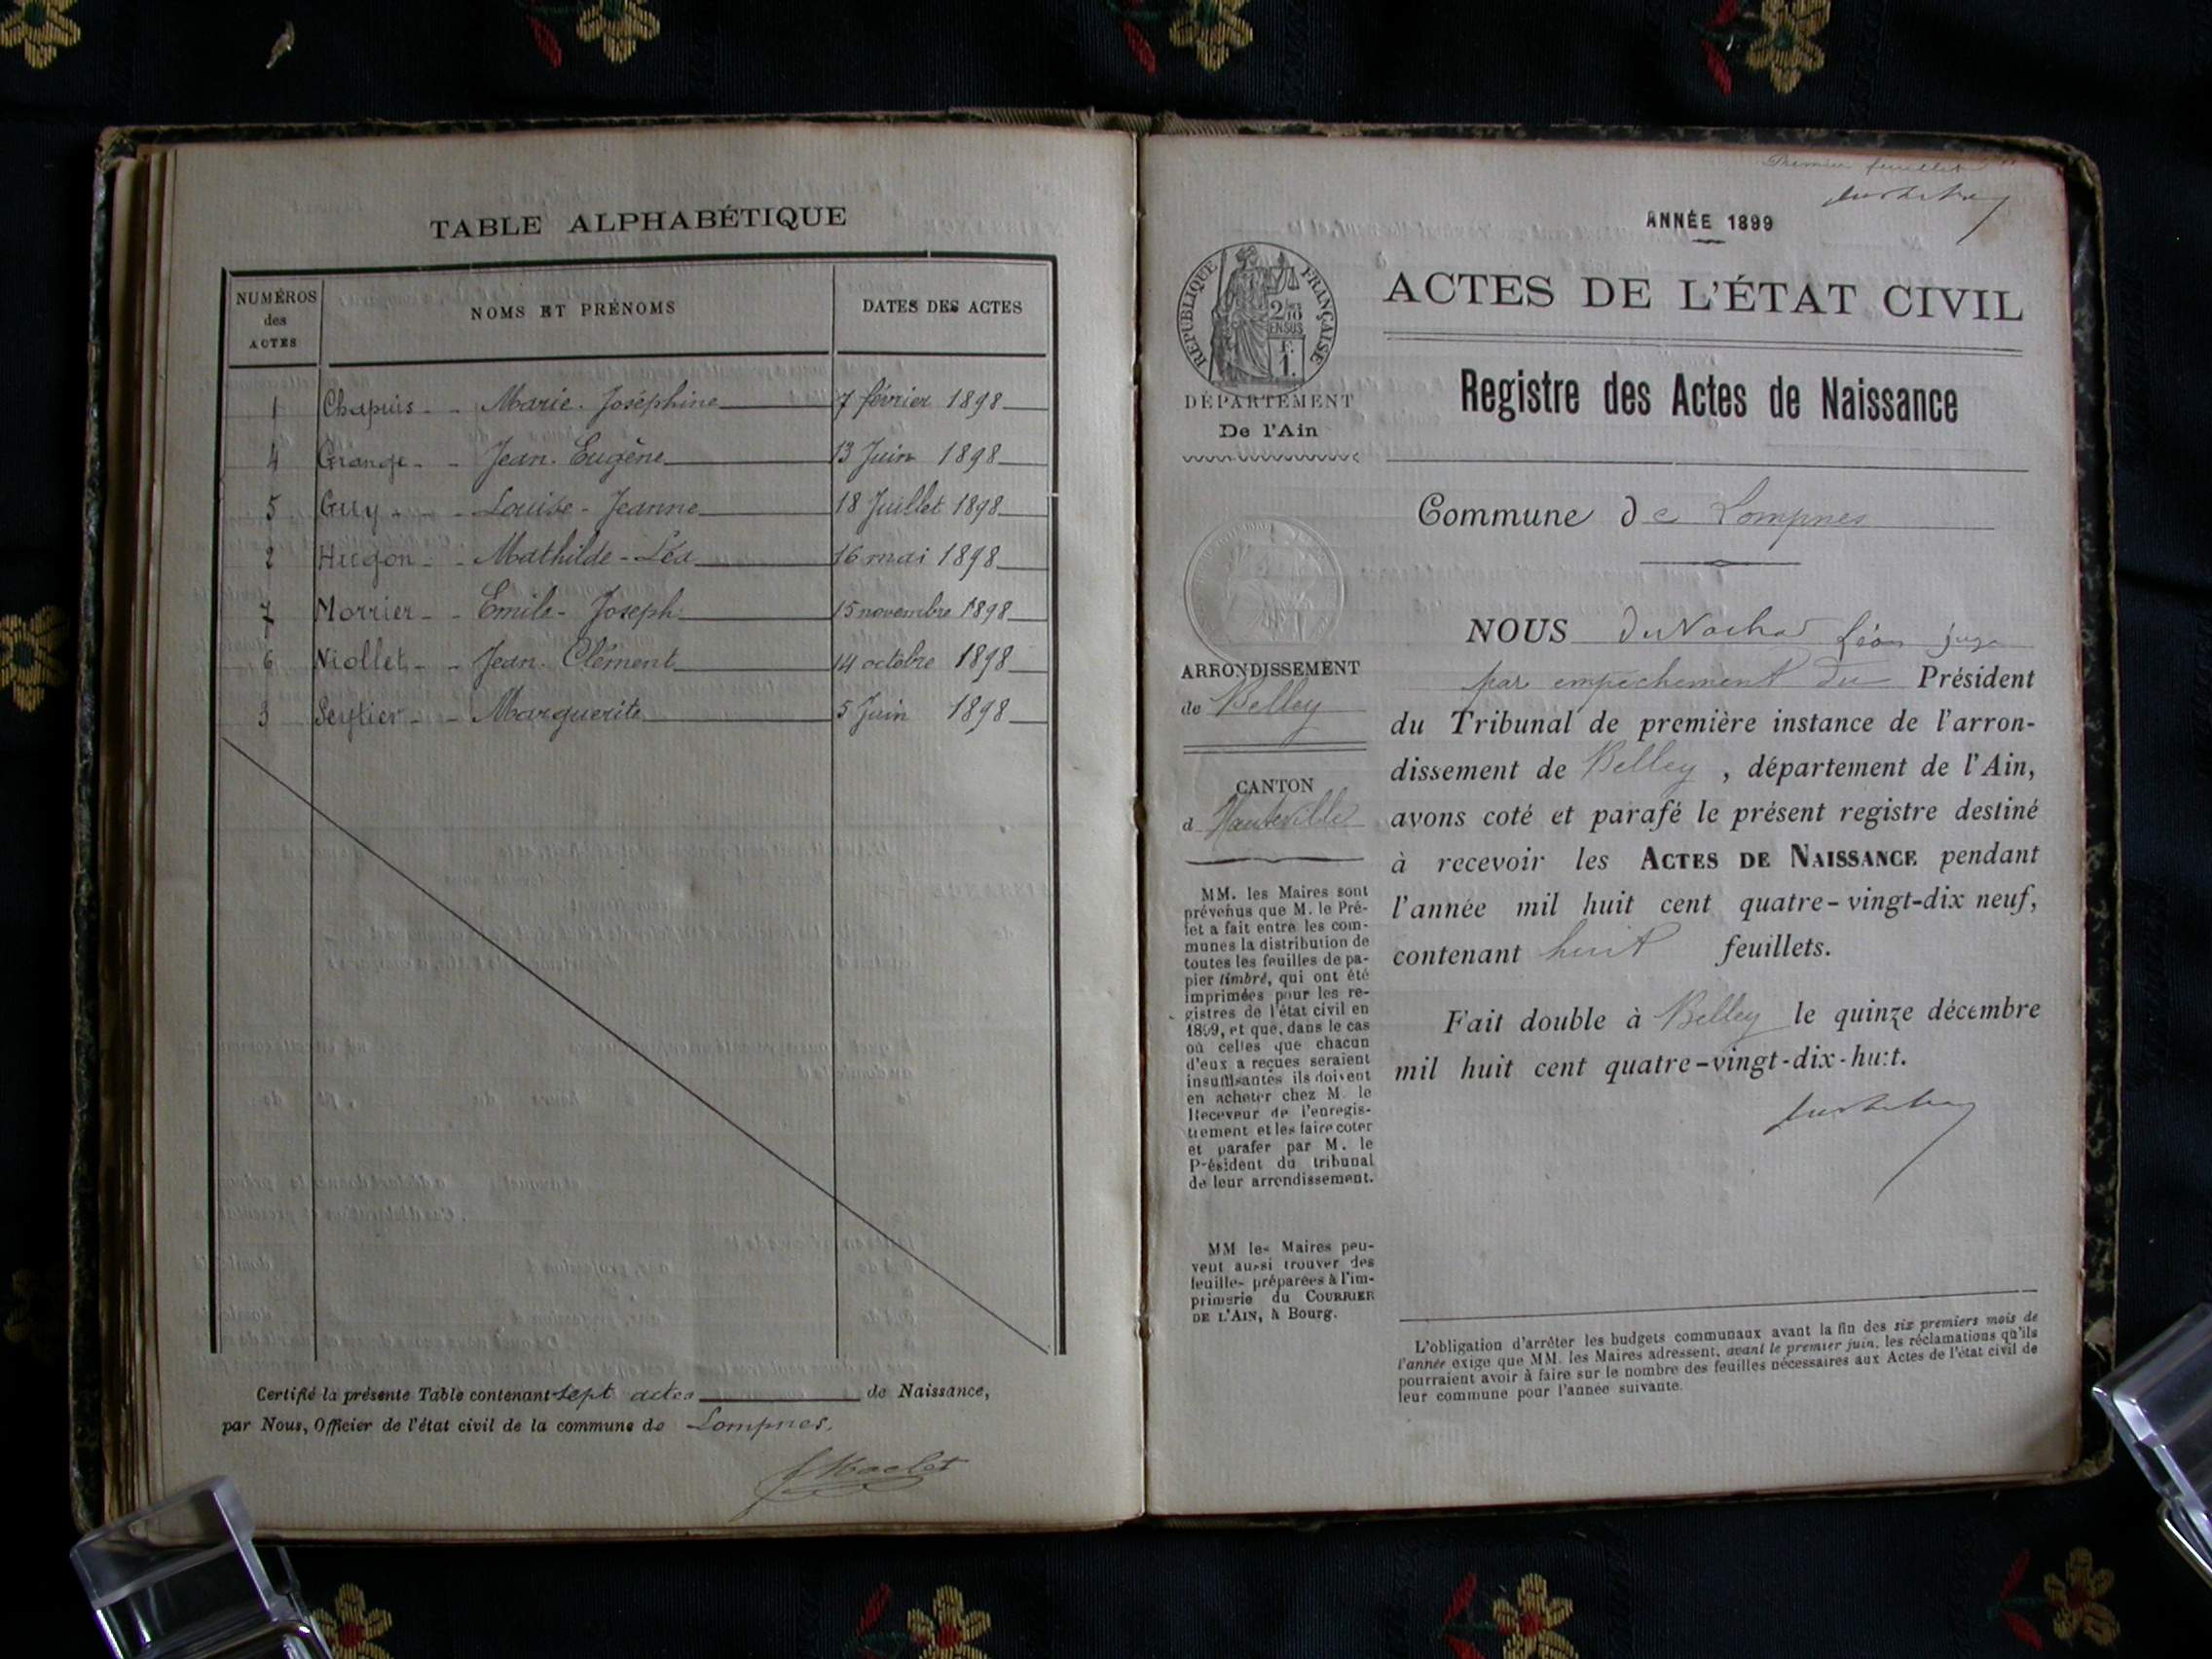 TABLE ALPHABÉTIQUE
NUMÉROS des ACTES NOMS ET PRÉNOMS DATES DES ACTES
1 Chapuis - - Marie-Joséphine 7 février 1898
4 Grange - - Jean-Eugène 13 Juin 1898
5 Guy - - Louise-Jeanne 18 Juillet 1898
2 Hugon - - Mathilde-Léa 16 mai 1898
7 Morrier - - Emile-Joseph 15 novembre 1898
6 Niollet - - Jean-Clément 14 octobre 1898
3 Seytier - - Marguerite 5 Juin 1898
Certifié la présente Table contenant sept actes de Naissance,
par Nous, Officier de l'état civil de la commune de Lompnes.
Premier feuillet
ANNÉE 1899
ACTES DE L'ÉTAT CIVIL
RÉPUBLIQUE FRANÇAISE
2/10 EN SUS
F. 1.
DÉPARTEMENT
De l'Ain
Registre des Actes de Naissance
Commune de Lompnes
ARRONDISSEMENT
de Belley
CANTON
d Hauteville
MM. les Maires sont
prévenus que M. le Pré-
fet a fait entre les com-
munes la distribution de
toutes les feuilles de pa-
pier timbré, qui ont été
imprimées pour les re-
gistres de l'état civil en
1899, et que, dans le cas
où celles que chacun
d'eux a reçues seraient
insuffisantes ils doivent
en acheter chez M. le
Receveur de l'enregis-
trement et les faire coter
et parafer par M. le
Président du tribunal
de leur arrondissement.
MM les Maires peu-
vent aussi trouver des
feuilles préparées à l'im-
primerie du COURRIER
DE L'AIN, à Bourg.
NOUS Léon juge
par empechement du Président
du Tribunal de première instance de l'arron-
dissement de Belley, département de l'Ain,
avons coté et parafé le présent registre destiné
à recevoir les ACTES DE NAISSANCE pendant
l'année mil huit cent quatre-vingt-dix neuf,
contenant huit feuillets.
Fait double à Belley le quinze décembre
mil huit cent quatre-vingt-dix-huit.
L'obligation d'arrêter les budgets communaux avant la fin des six premiers mois de
l'année exige que MM. les Maires adressent, avant le premier juin, les réclamations qu'ils
pourraient avoir à faire sur le nombre des feuilles nécessaires aux Actes de l'état civil de
leur commune pour l'année suivante.